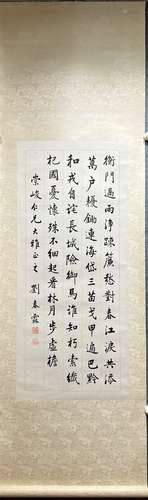 衡門過雨淨疎簾愁對春江淚共添
萬戶耰鋤連海岱三苗戈甲遍巴黔
和戎自詫長城險御馬誰知朽索纖
杞國憂懷殊不細起看林月步虛檐
崇峻仁兄大雅正之 劉春霖